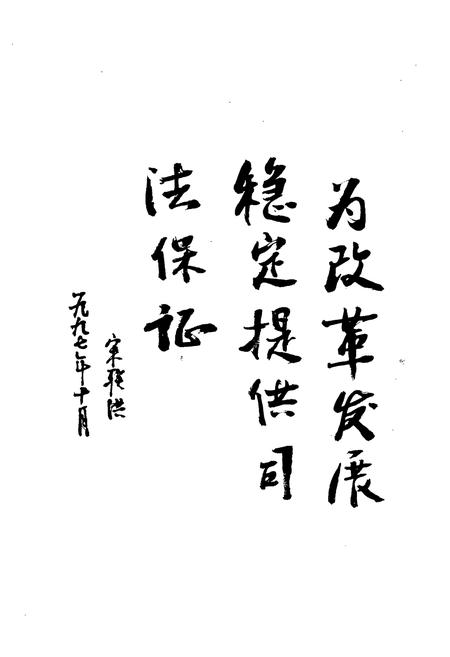 为改革发展
稳定提供司
法保证
宋
一九九七年十月